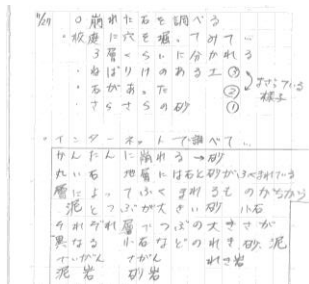 9/27 ○崩れた石を調べる
・校庭に穴を掘ってみて…
3層くらいに分かれる
・ねばりけのある土 ③
・石があった ②
・さらさらの砂 ①
まざっている
様子
・インターネットで調べて…
かんたんに崩れる→砂
丸い石 地層には石と砂がふくまれている
層によってふくまれるものがちがう
泥とつぶが大きい砂 小石
それぞれ層でつぶの大きさが
異なる 小石などのれき 砂、泥
でいがん さがん れき岩
泥岩 砂岩